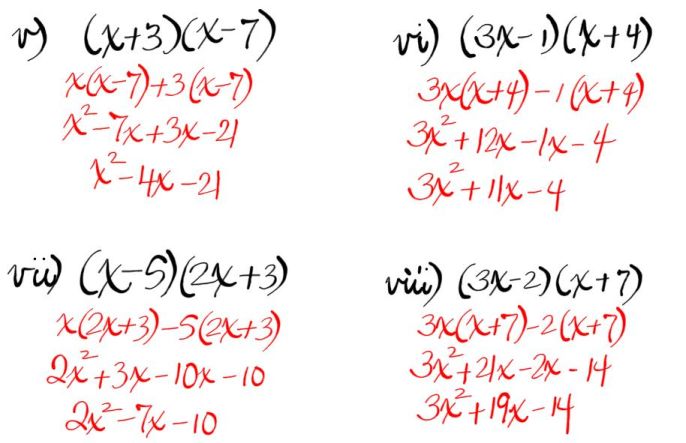 v) (x+3)(x-7)
x(x-7)+3(x-7)
x²-7x+3x-21
x²-4x-21
vi) (3x-1)(x+4)
3x(x+4)-1(x+4)
3x²+12x-1x-4
3x²+11x-4
vii) (x-5)(2x+3)
x(2x+3)-5(2x+3)
2x²+3x-10x-10
2x²-7x-10
viii) (3x-2)(x+7)
3x(x+7)-2(x+7)
3x²+21x-2x-14
3x²+19x-14